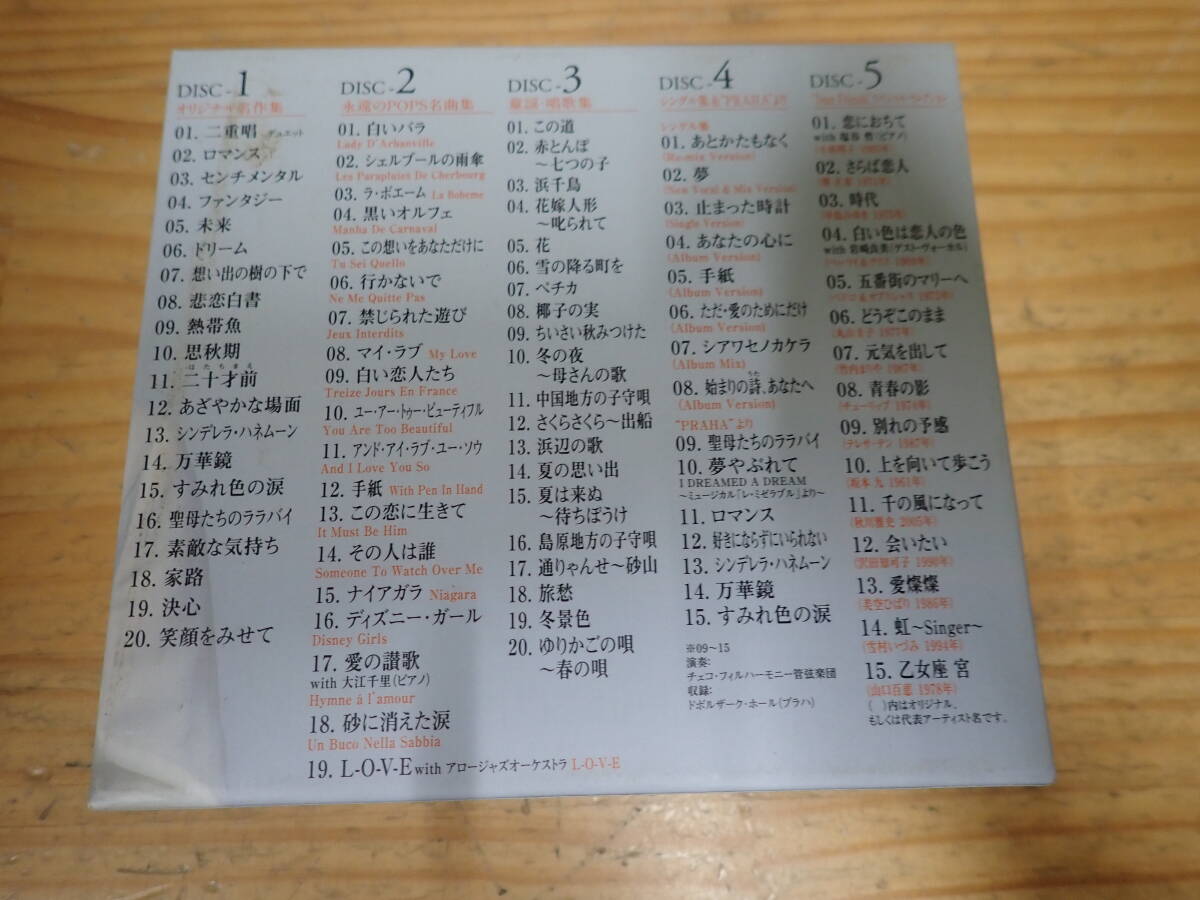 DISC-1
オリジナル名作集
01. 二重唱 デュエット
02. ロマンス
03. センチメンタル
04. ファンタジー
05. 未来
06. ドリーム
07. 想い出の樹の下で
08. 悲恋白書
09. 熱帯魚
10. 思秋期
11. 二十才前
はたちまえ
12. あざやかな場面
13. シンデレラ・ハネムーン
14. 万華鏡
15. すみれ色の涙
16. 聖母たちのララバイ
17. 素敵な気持ち
18. 家路
19. 決心
20. 笑顔をみせて
DISC-2
永遠のPOPS名曲集
01. 白いバラ
Lady D'Arbanville
02. シェルブールの雨傘
Les Parapluies De Cherbourg
03. ラ・ボエーム La Boheme
04. 黒いオルフェ
Manha De Carnaval
05. この想いをあなただけに
Tu Sei Quello
06. 行かないで
Ne Me Quitte Pas
07. 禁じられた遊び
Jeux Interdits
08. マイ・ラブ My Love
09. 白い恋人たち
Treize Jours En France
10. ユー・アー・トゥー・ビューティフル
You Are Too Beautiful
11. アンド・アイ・ラブ・ユー・ソウ
And I Love You So
12. 手紙 With Pen In Hand
13. この恋に生きて
It Must Be Him
14. その人は誰
Someone To Watch Over Me
15. ナイアガラ Niagara
16. ディズニー・ガール
Disney Girls
17. 愛の讃歌
with 大江千里(ピアノ)
Hymne à l'amour
18. 砂に消えた涙
Un Buco Nella Sabbia
19. L-O-V-E with アロージャズオーケストラ L-O-V-E
DISC-3
童謡・唱歌集
01. この道
02. 赤とんぼ
～七つの子
03. 浜千鳥
04. 花嫁人形
～叱られて
05. 花
06. 雪の降る町を
07. ペチカ
08. 椰子の実
09. ちいさい秋みつけた
10. 冬の夜
～母さんの歌
11. 中国地方の子守唄
12. さくらさくら～出船
13. 浜辺の歌
14. 夏の思い出
15. 夏は来ぬ
～待ちぼうけ
16. 島原地方の子守唄
17. 通りゃんせ～砂山
18. 旅愁
19. 冬景色
20. ゆりかごの唄
～春の唄
DISC-4
シングル集&"PRAHA"より
シングル集
01. あとかたもなく
(Re-mix Version)
02. 夢
(New Vocal & Mix Version)
03. 止まった時計
(Single Version)
04. あなたの心に
(Album Version)
05. 手紙
(Album Version)
06. ただ・愛のためにだけ
(Album Version)
07. シアワセノカケラ
(Album Mix)
08. 始まりの詩、あなたへ
うた
(Album Version)
"PRAHA"より
09. 聖母たちのララバイ
10. 夢やぶれて
I DREAMED A DREAM
～ミュージカル「レ・ミゼラブル」より～
11. ロマンス
12. 好きにならずにいられない
13. シンデレラ・ハネムーン
14. 万華鏡
15. すみれ色の涙
※09～15
演奏:
チェコ・フィルハーモニー管弦楽団
収録:
ドボルザーク・ホール(プラハ)
DISC-5
01. 恋におちて
with 塩谷 哲(ピアノ)
02. さらば恋人
03. 時代
04. 白い色は恋人の色
with 岩崎良美(ゲストヴォーカル)
05. 五番街のマリーへ
06. どうぞこのまま
(丸山圭子 1977年)
07. 元気を出して
(竹内まりや 1987年)
08. 青春の影
(チューリップ 1974年)
09. 別れの予感
(テレサ・テン 1987年)
10. 上を向いて歩こう
(坂本 九 1961年)
11. 千の風になって
(秋川雅史 2005年)
12. 会いたい
(沢田知可子 1990年)
13. 愛燦燦
(美空ひばり 1986年)
14. 虹～Singer～
(雪村いづみ 1994年)
15. 乙女座 宮
(山口百恵 1978年)
( )内はオリジナル、
もしくは代表アーティスト名です。